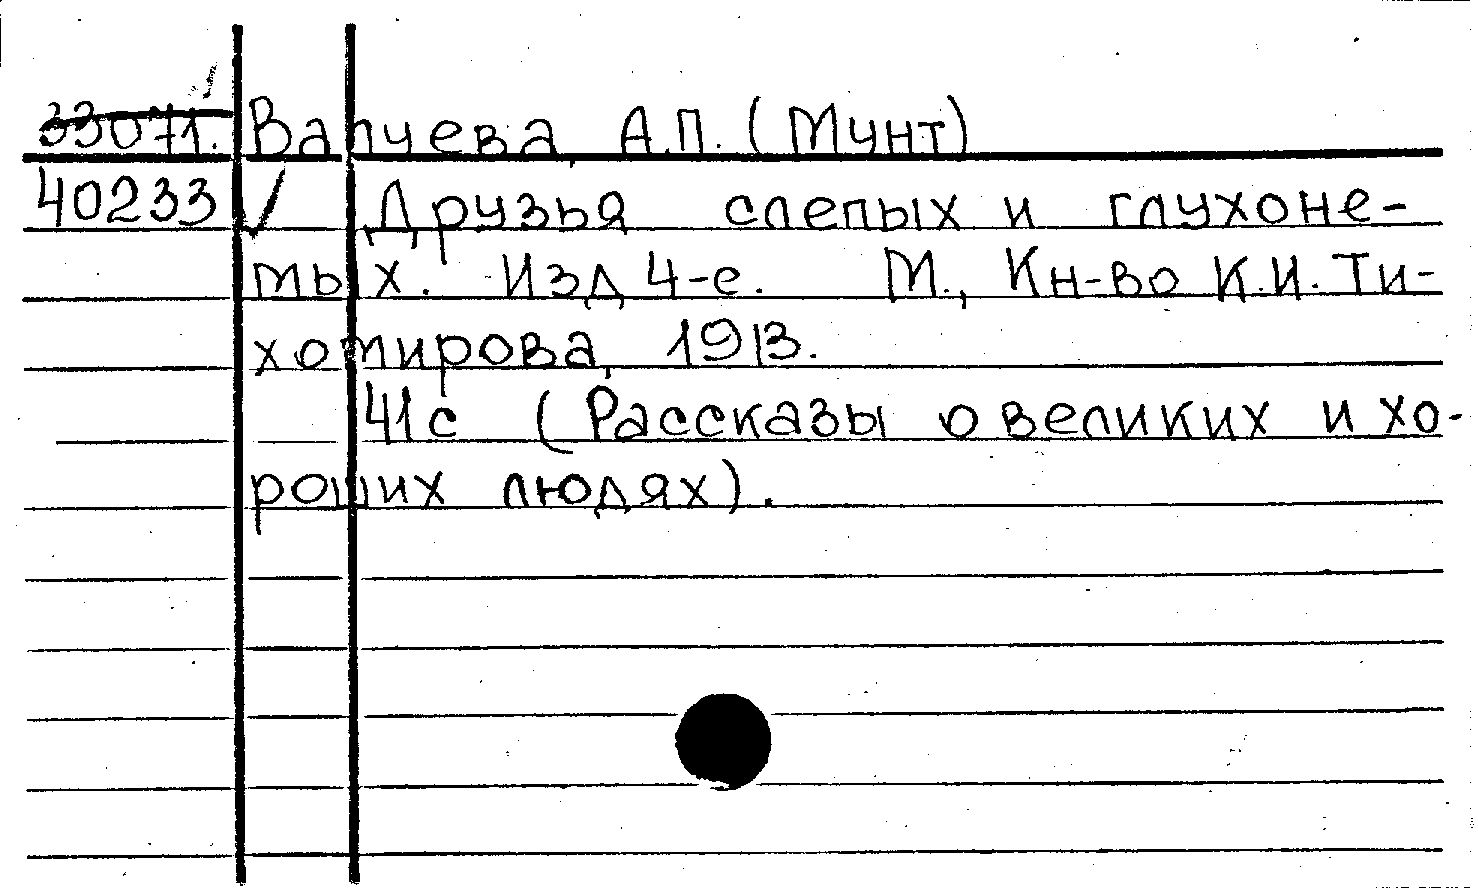 33071. Валуева, А.П. (Мунт)
40233 Друзья слепых и глухоне-
мых. Изд 4-е. М., Кн-во К.И. Ти-
хомирова, 1913.
41с (Рассказы о великих и хо-
роших людях).